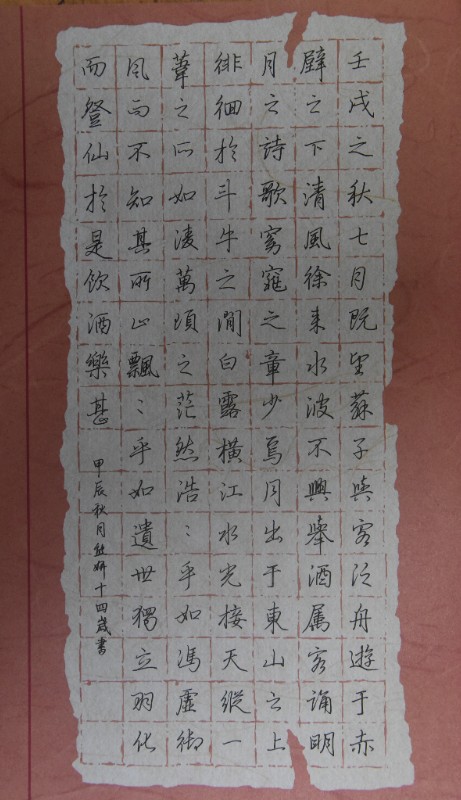 壬戌之秋七月既望蘇子與客泛舟遊于赤
壁之下清風徐來水波不興舉酒属客誦明
月之詩歌窈窕之章少焉月出于東山之上
徘徊於斗牛之間白露橫江水光接天縱一
葦之所如淩萬頃之茫然浩〻乎如馮虛御
風而不知其所止飄〻乎如遺世獨立羽化
而登仙於是飲酒樂甚
甲辰秋月妍十四歲書